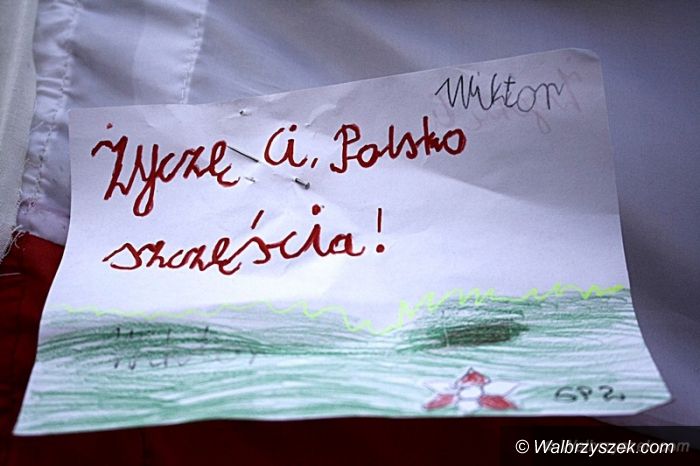 Wiktor
Życzę Ci, Polsko
szczęścia!
SP 2.
© Walbrzyszek.com